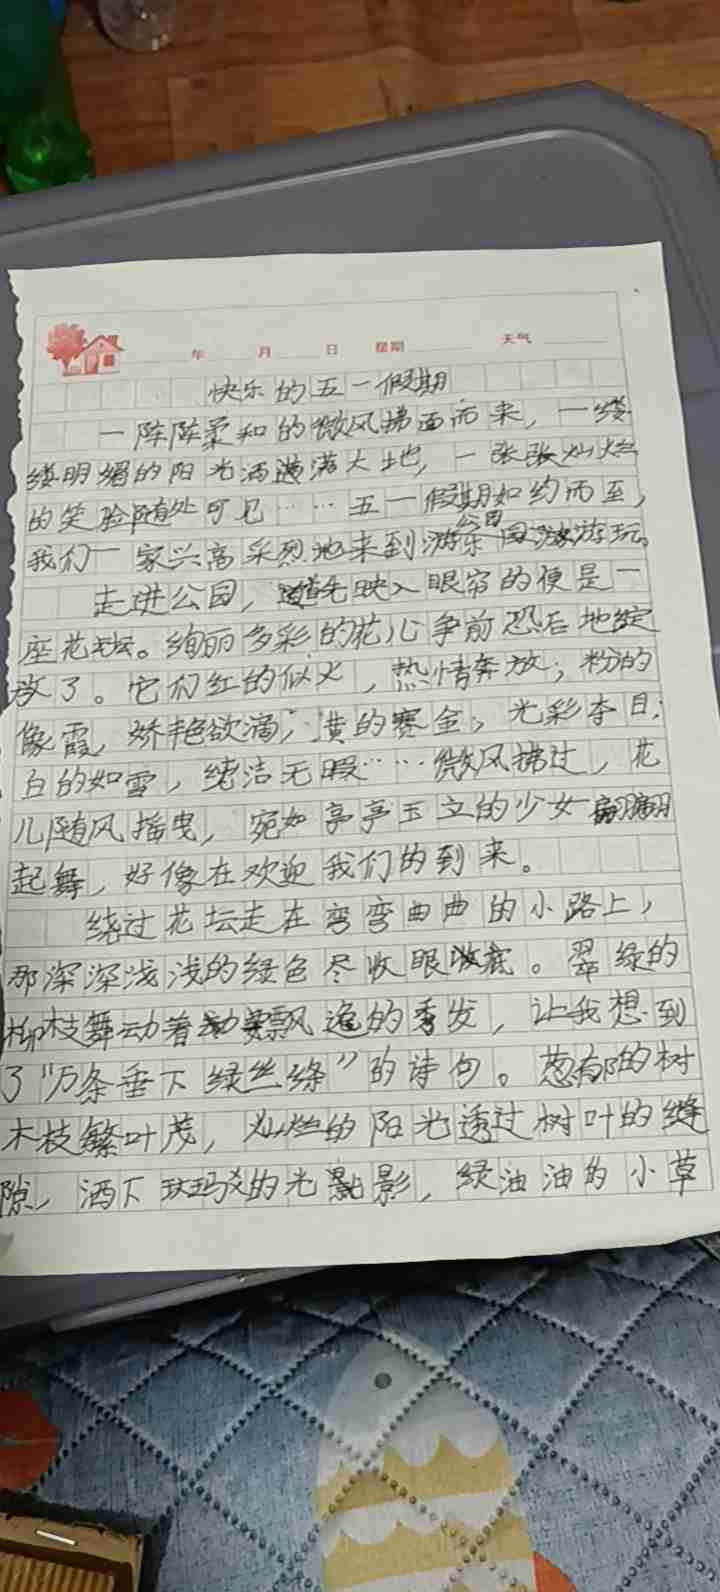 年 月 日 星期 天气
快乐的五一假期
一阵阵柔和的微风拂面而来，一缕
缕明媚的阳光洒满大地，一张张灿烂
的笑脸随处可见……五一假期如约而至，
我们一家兴高采烈地来到公园游玩。
走进公园，首先映入眼帘的便是一
座花坛。绚丽多彩的花儿争前恐后地绽
放了。它们红的似火，热情奔放；粉的
像霞，娇艳欲滴；黄的赛金，光彩夺目；
白的如雪，纯洁无暇……微风拂过，花
儿随风摇曳，宛如亭亭玉立的少女翩翩
起舞，好像在欢迎我们的到来。
绕过花坛走在弯弯曲曲的小路上，
那深深浅浅的绿色尽收眼底。翠绿的
柳枝舞动着飘逸的秀发，让我想到
了“万条垂下绿丝绦”的诗句。葱郁的树
木枝繁叶茂，灿烂的阳光透过树叶的缝
隙，洒下斑驳的光影，绿油油的小草